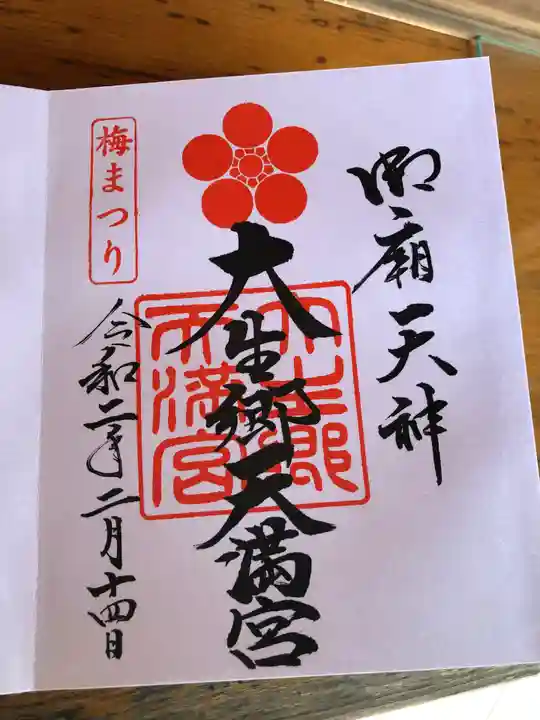 御廟天神
大生郷天満宮
大生郷天満宮
梅まつり
令和二年二月十四日